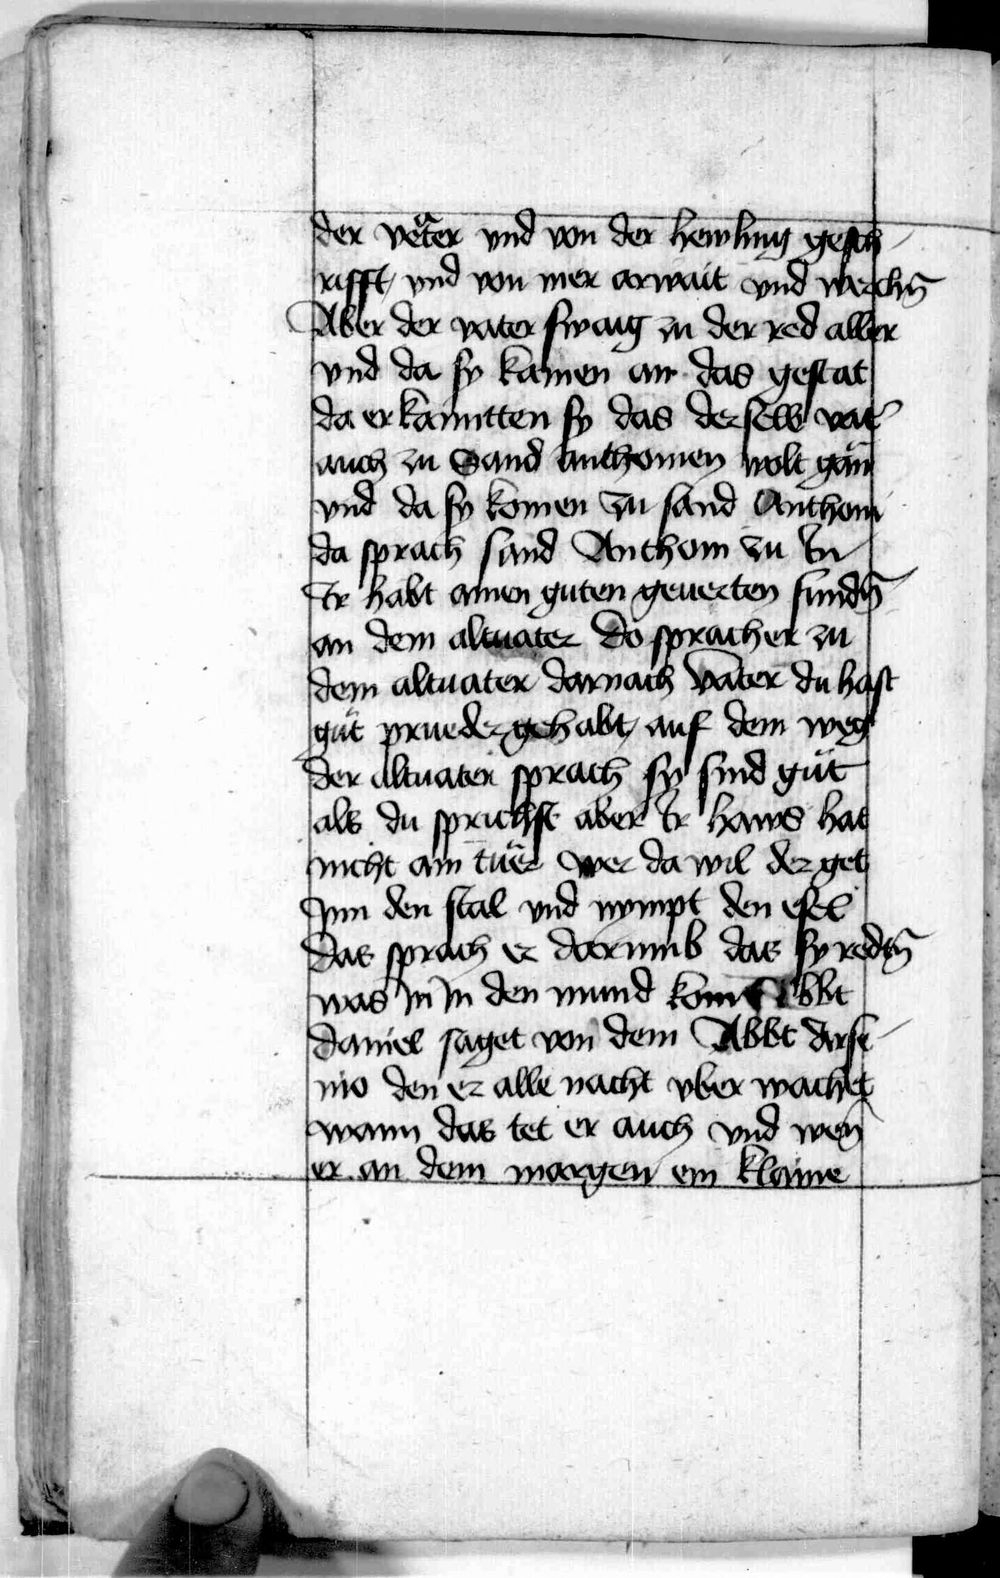 der veter vnd von der heyling gesch
rifft vnd von irer arwait vnd werchn̄
Aber der vater swaig zu der red aller
vnd da sy kamen an das gestat
da erkanntten sy das derselb vat̄
auch zu Sand Anthonien wolt gan
vnd da sy komen zu sand Anthoni
da sprach sand Anthoni zu In
Ir habt ainen guten geuerten fundn̄
an dem altuater Do sprach er zu
dem altuater darnach vater du hast
gůt prueder gehabt auf dem weg
der altuater sprach sy sind gůt
als du sprichst aber Ir haws hat
nicht ain tuer wer da wil der get
Inn den stal vnd nympt den esel
Das sprach er darumb das sy redtn̄
was In In den mund kom Abbt
Daniel saget von dem Abbt Arse
nio den er alle nacht vber wachet
wann das tet er auch vnd wen̄
er an dem margen ein klaine